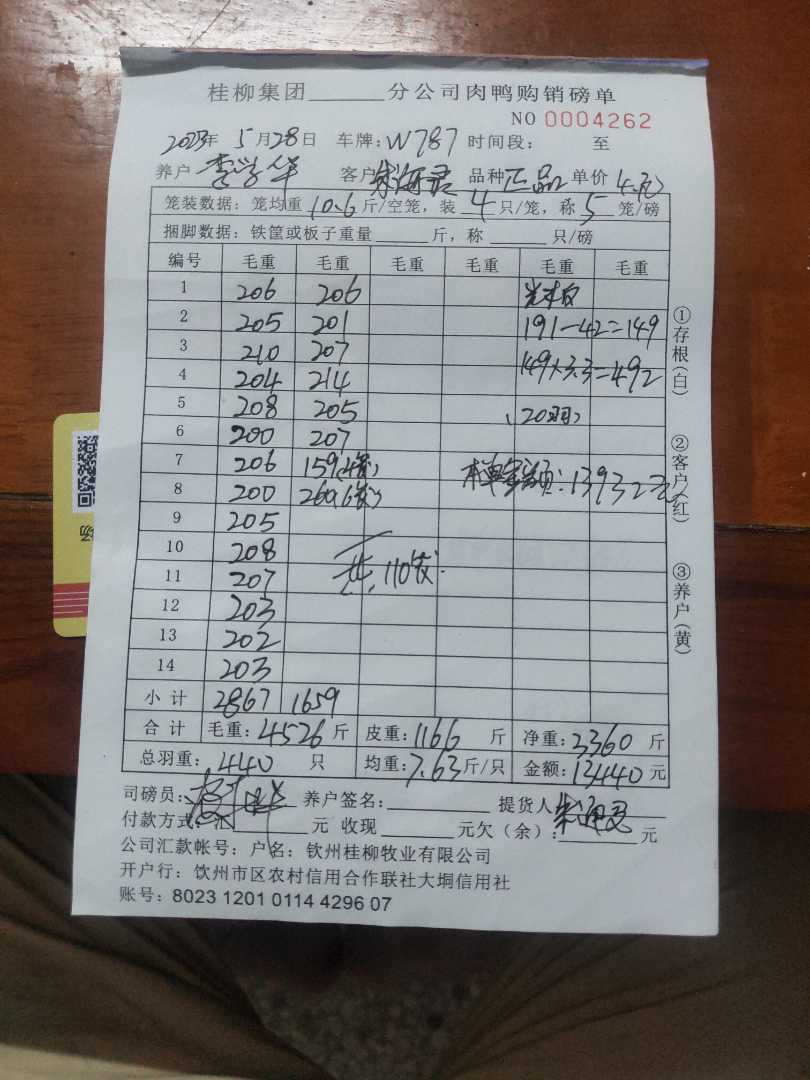 桂柳集团______分公司肉鸭购销磅单
NO 0004262
2023年 5月28日 车牌:W787 时间段: 至
养户 李学华 客户 品种 正品 单价
笼装数据:笼均重 10.6 斤/空笼,装 4 只/笼,称 5 笼/磅
捆脚数据:铁筐或板子重量______斤,称______只/磅
编号 毛重 毛重 毛重 毛重 毛重 毛重
1 206 206
2 205 201 191-42=149
3 210 207
4 204 214 149×3.3=492
5 208 205 (20羽)
6 200 207
7 206 159(4笼) 本单总额:13932元
8 200 260(6笼)
9 205
10 208 共110笼
11 207
12 203
13 202
14 203
小计 2867 1659
合计 毛重:4526斤 皮重:1166斤 净重:3360斤
总羽重:440只 均重:7.63斤/只 金额:13440元
司磅员: 养户签名:______ 提货人
付款方式:汇______元 收现______元欠(余):______元
公司汇款帐号:户名:钦州桂柳牧业有限公司
开户行:钦州市区农村信用合作联社大垌信用社
账号:8023 1201 0114 4296 07
①存根(白)
②客户(红)
③养户(黄)
场